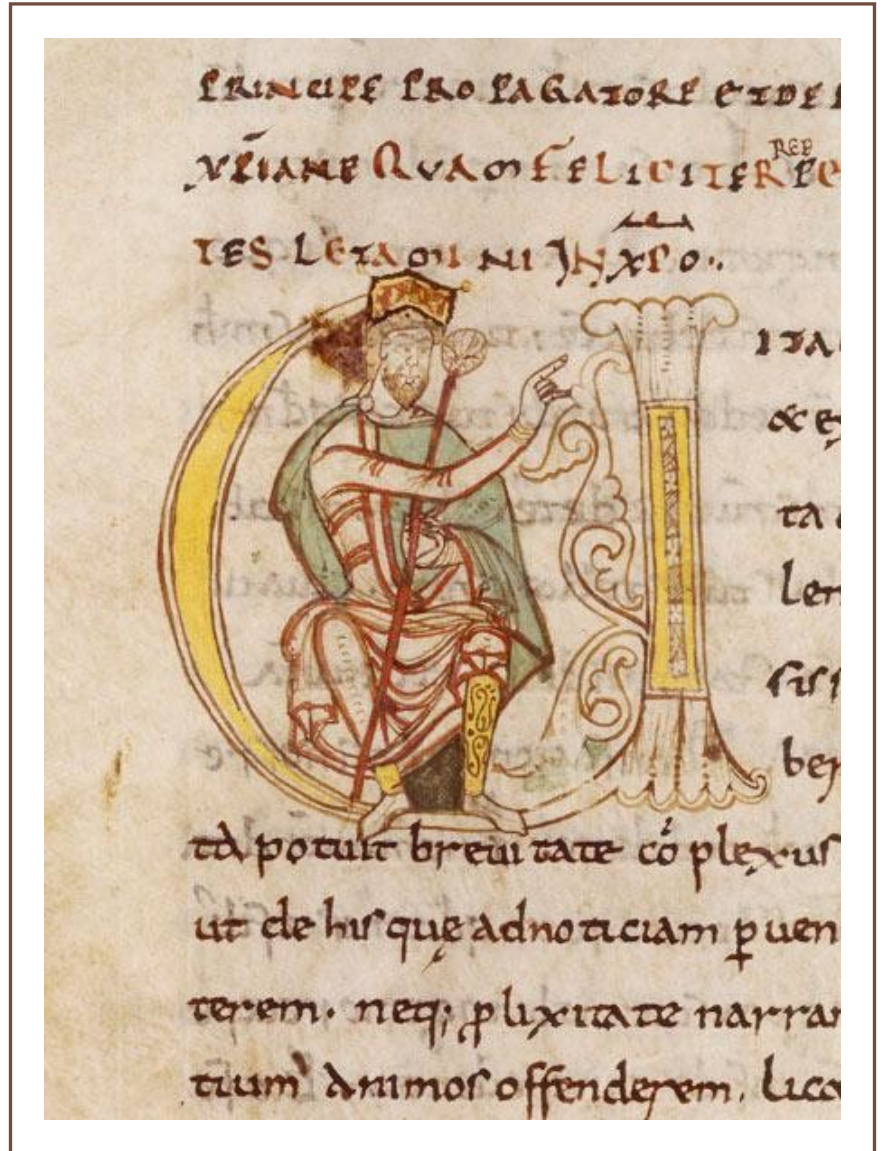 PRINCIPE PROPAGATORE ET DE
YPRIANE QUAM FELICITER REP
TES LETA OMNI IN XPO.
U ITA
& ex
ta
len
sis
ber
ta potuit breuitate cō plexus
ut de his quę ad noticiam ꝑuen
terem. neq; ꝓlixitate narran
tium animos offenderem. lica